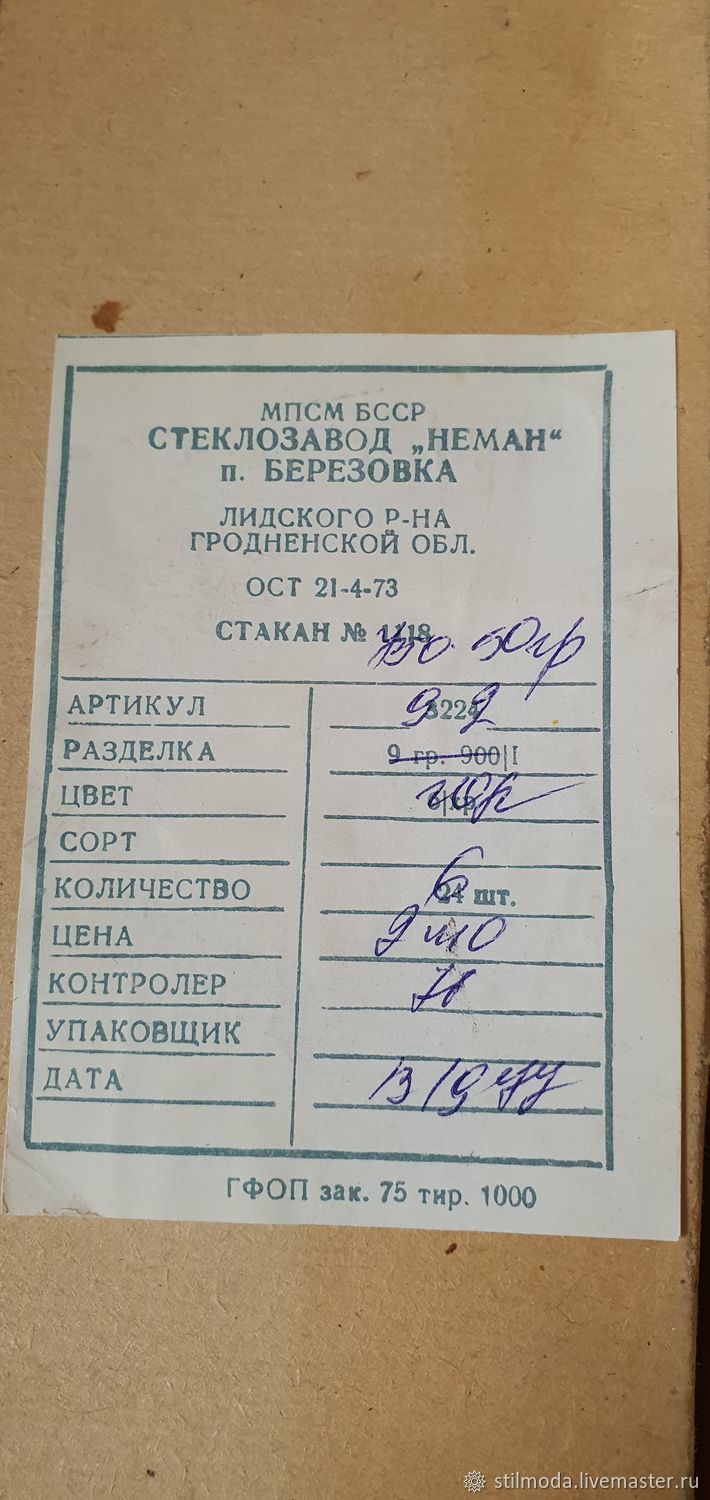 МПСМ БССР
СТЕКЛОЗАВОД „НЕМАН“
п. БЕРЕЗОВКА
ЛИДСКОГО Р-НА
ГРОДНЕНСКОЙ ОБЛ.
ОСТ 21-4-73
СТАКАН № 1118
АРТИКУЛ
РАЗДЕЛКА 9 гр. 900|I
ЦВЕТ
СОРТ
КОЛИЧЕСТВО 6 24 шт.
ЦЕНА
КОНТРОЛЕР
УПАКОВЩИК
ДАТА
ГФОП зак. 75 тир. 1000
stilmoda.livemaster.ru